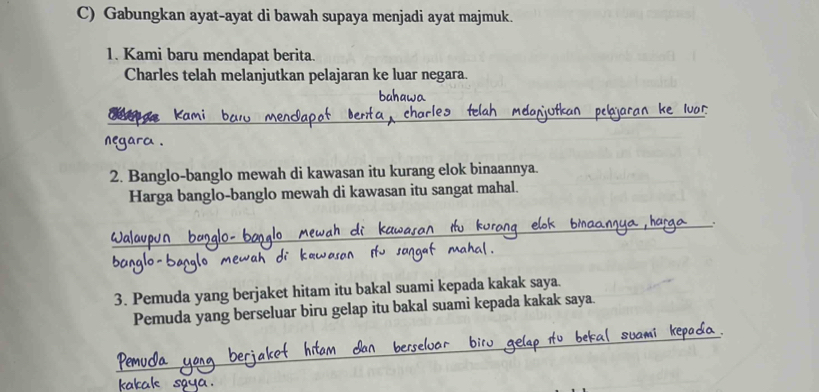 C) Gabungkan ayat-ayat di bawah supaya menjadi ayat majmuk.
1. Kami baru mendapat berita.
Charles telah melanjutkan pelajaran ke luar negara.
bahawa
Kami baru mendapat berita, charles telah melanjutkan pelajaran ke luar
negara.
2. Banglo-banglo mewah di kawasan itu kurang elok binaannya.
Harga banglo-banglo mewah di kawasan itu sangat mahal.
Walaupun banglo-banglo mewah di kawasan itu kurang elok binaannya, harga
banglo-banglo mewah di kawasan itu sangat mahal.
3. Pemuda yang berjaket hitam itu bakal suami kepada kakak saya.
Pemuda yang berseluar biru gelap itu bakal suami kepada kakak saya.
Pemuda yang berjaket hitam dan berseluar biru gelap itu bakal suami kepada
kakak saya.